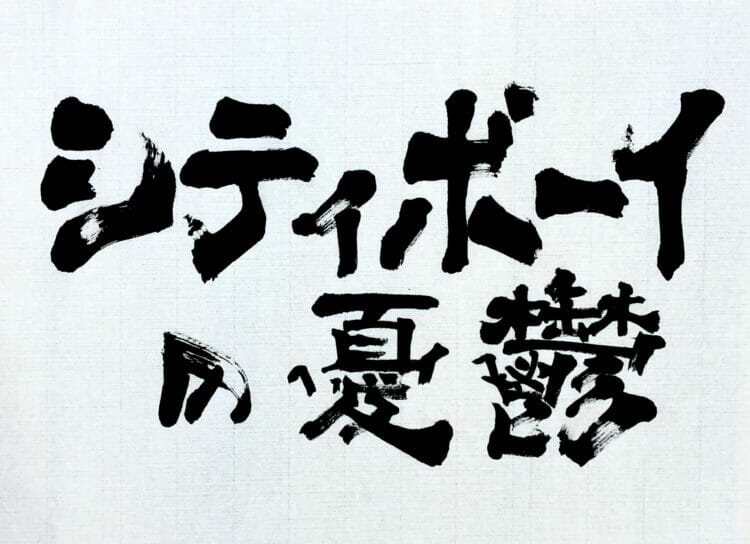 シティボーイ
の憂鬱